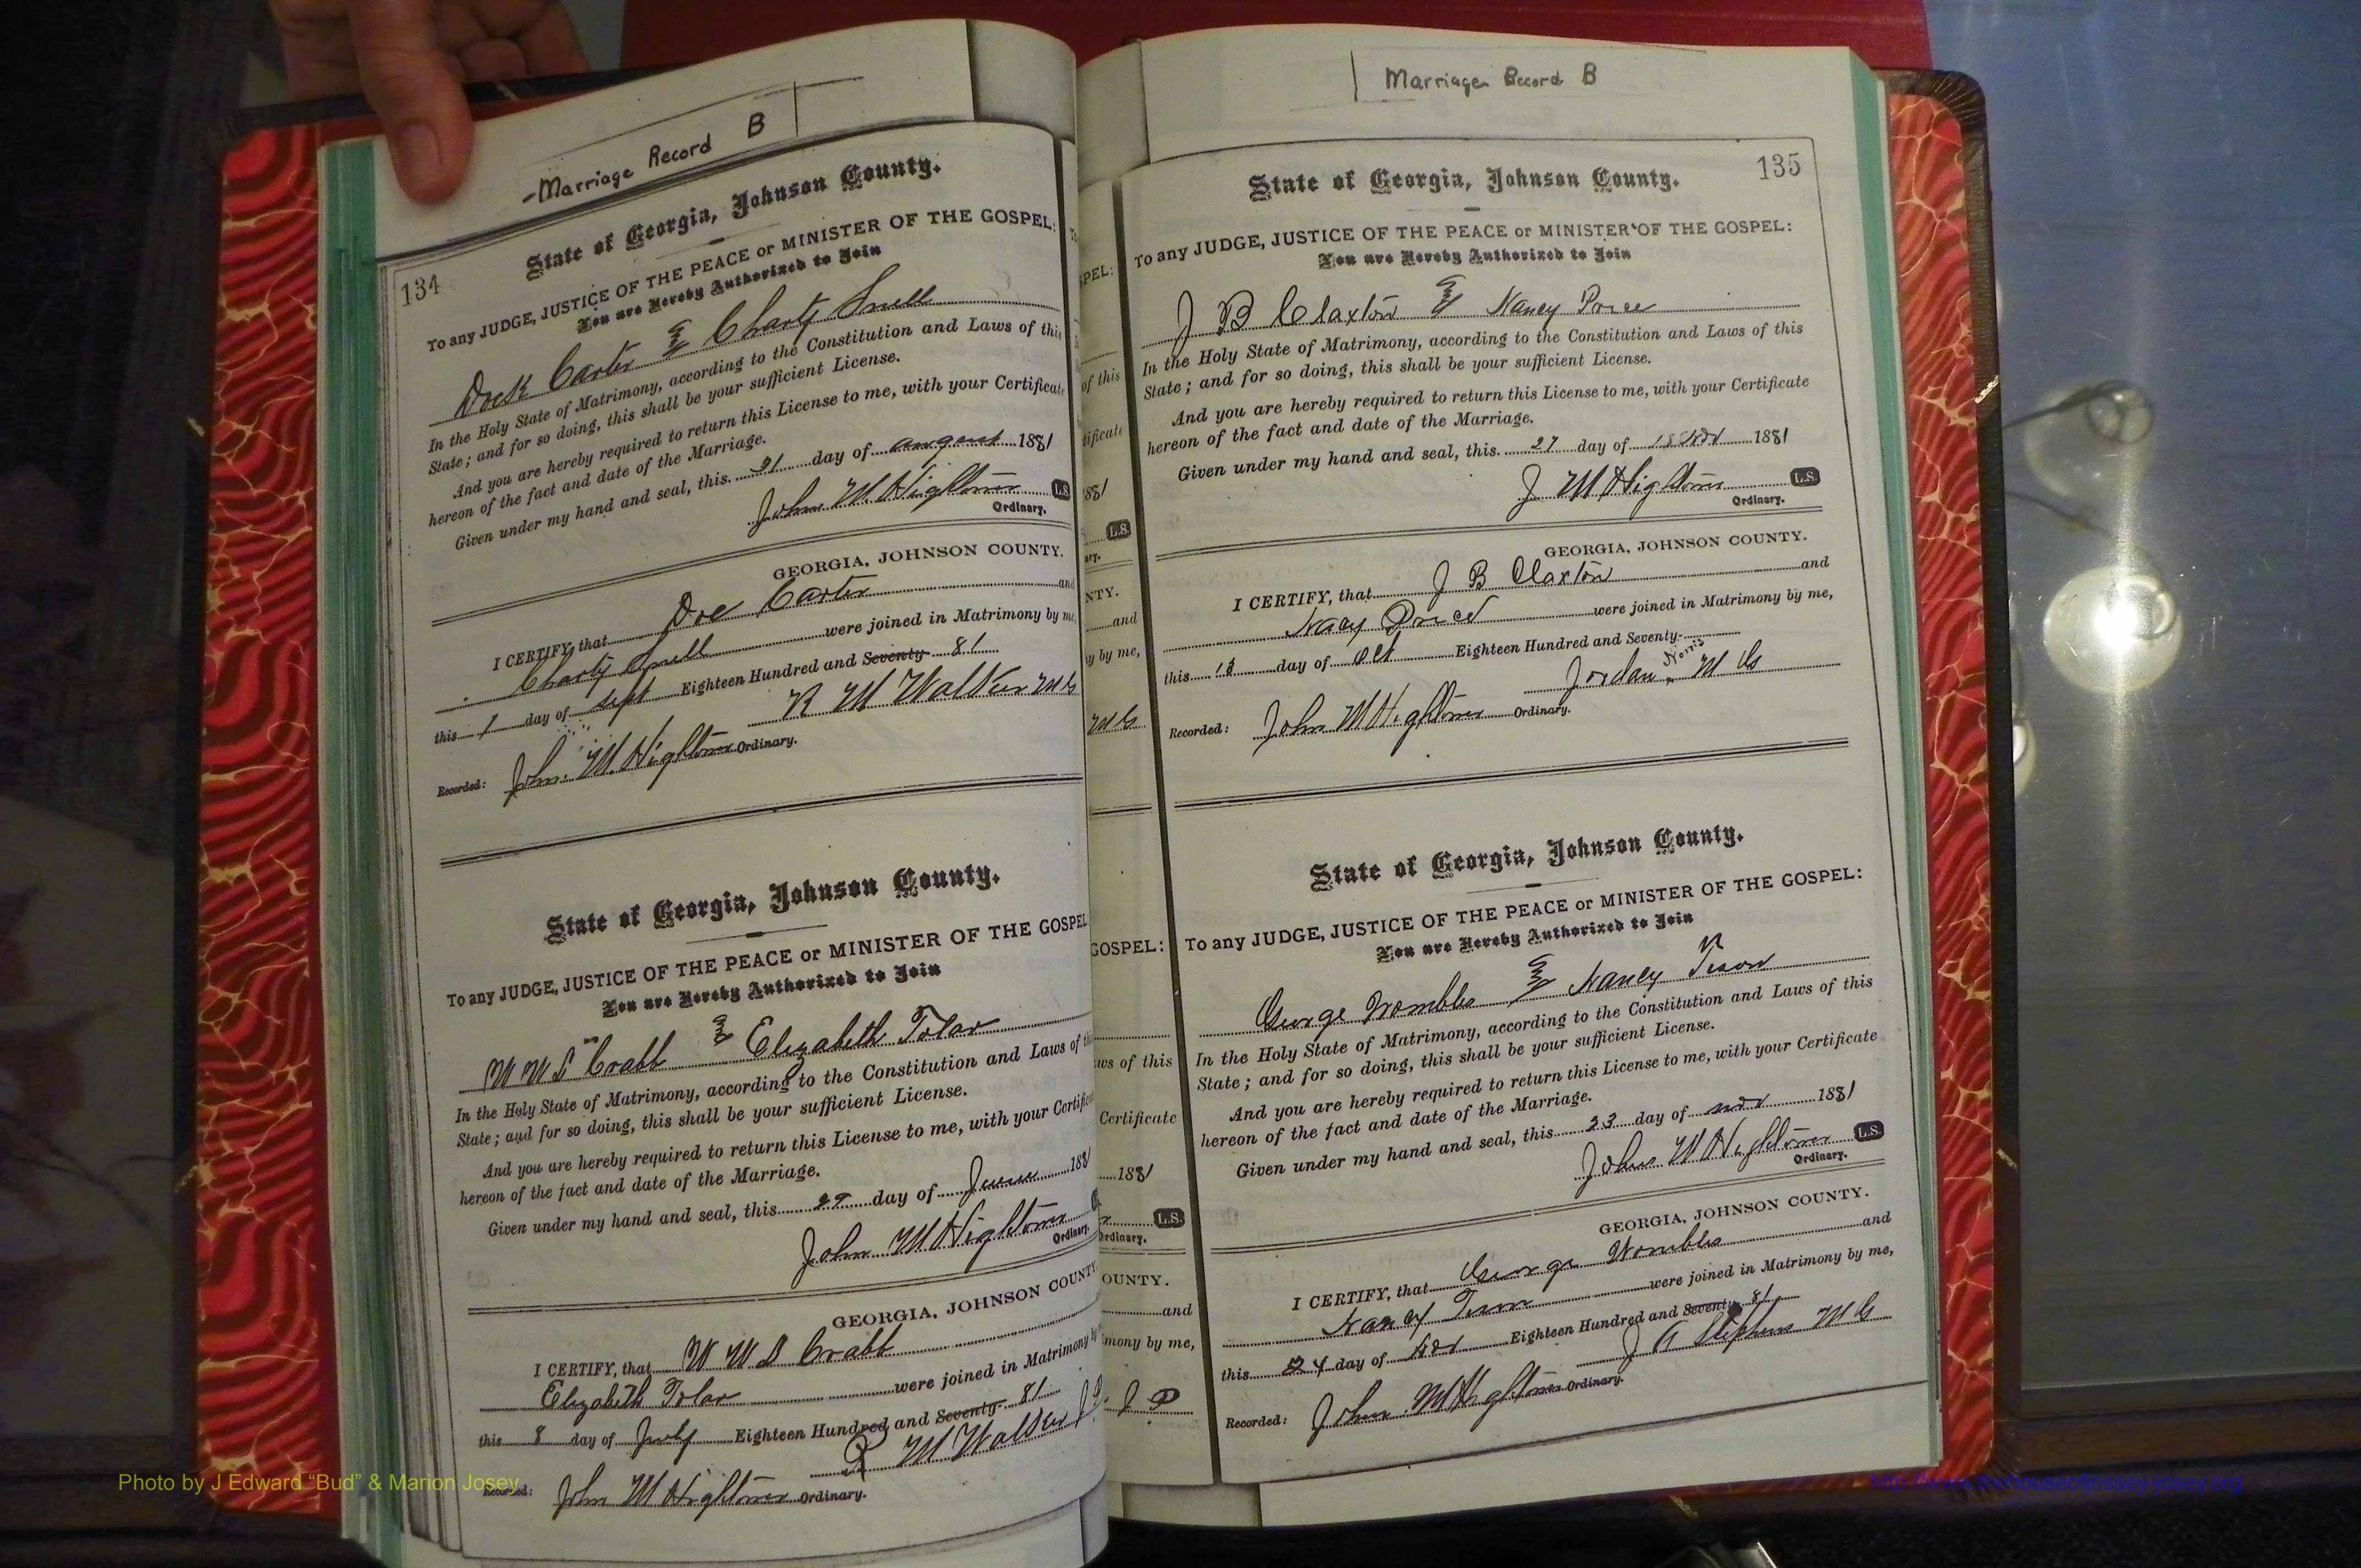 -Marriage Record B
134
State of Georgia, Johnson County.
To any JUDGE, JUSTICE OF THE PEACE or MINISTER OF THE GOSPEL:
You are Hereby Authorized to Join
Dock Carter & Charty Snell
In the Holy State of Matrimony, according to the Constitution and Laws of this
State; and for so doing, this shall be your sufficient License.
And you are hereby required to return this License to me, with your Certificate
hereon of the fact and date of the Marriage.
Given under my hand and seal, this 31 day of august 1881
John M Hightower L.S.
Ordinary.
GEORGIA, JOHNSON COUNTY.
I CERTIFY, that Doc Carter and
Charty Snell were joined in Matrimony by me,
this 1 day of sept Eighteen Hundred and Seventy- 81
R M Walker MG
Recorded: John M. Hightower Ordinary.
State of Georgia, Johnson County.
To any JUDGE, JUSTICE OF THE PEACE or MINISTER OF THE GOSPEL
You are Hereby Authorized to Join
W W S Crabb & Elizabeth Tolar
In the Holy State of Matrimony, according to the Constitution and Laws of th
State; and for so doing, this shall be your sufficient License.
And you are hereby required to return this License to me, with your Certific
hereon of the fact and date of the Marriage.
Given under my hand and seal, this 29 day of June 1881
John M Hightower
Ordinary.
GEORGIA, JOHNSON COUNTY
I CERTIFY, that W W S Crabb
Elizabeth Tolar were joined in Matrimony by
this 8 day of July Eighteen Hundred and Seventy- 81
R M Walker J P
Recorded: John M Hightower Ordinary.
Marriage Record B
135
State of Georgia, Johnson County.
To any JUDGE, JUSTICE OF THE PEACE or MINISTER OF THE GOSPEL:
You are Hereby Authorized to Join
J B Claxton & Nancy Price
In the Holy State of Matrimony, according to the Constitution and Laws of this
State; and for so doing, this shall be your sufficient License.
And you are hereby required to return this License to me, with your Certificate
hereon of the fact and date of the Marriage.
Given under my hand and seal, this 27 day of 1881
J M Hightower L.S.
Ordinary.
GEORGIA, JOHNSON COUNTY.
I CERTIFY, that J B Claxton and
Nacy Price were joined in Matrimony by me,
this 13 day of Oct Eighteen Hundred and Seventy-
Jordan Norris M G
Recorded: John M Hightower Ordinary.
State of Georgia, Johnson County.
To any JUDGE, JUSTICE OF THE PEACE or MINISTER OF THE GOSPEL:
You are Hereby Authorized to Join
George Wombles & Nancy Tison
In the Holy State of Matrimony, according to the Constitution and Laws of this
State; and for so doing, this shall be your sufficient License.
And you are hereby required to return this License to me, with your Certificate
hereon of the fact and date of the Marriage.
Given under my hand and seal, this 23 day of nov 1881
John M Hightower L.S.
Ordinary.
GEORGIA, JOHNSON COUNTY.
I CERTIFY, that George Wombles and
Nancy Tison were joined in Matrimony by me,
this 24 day of Nov Eighteen Hundred and Seventy 81
J A Stephens M G
Recorded: John M Hightower Ordinary.
PEL:
of this
tificate
881
L.S.
ary.
NTY.
and
y by me,
M G
GOSPEL:
ws of this
Certificate
1881
L.S.
Ordinary.
OUNTY.
and
mony by me,
J P
Photo by J Edward “Bud” & Marion Josey
http://www.thehouseofjossey-josey.org